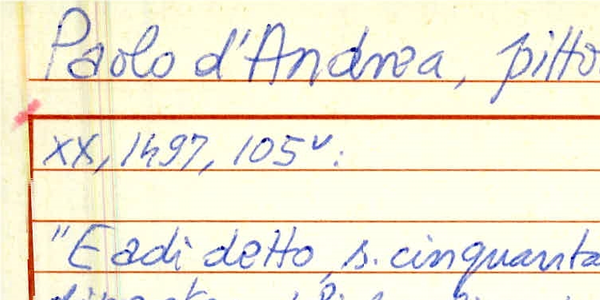 Paolo d'Andrea, pitto
XX, 1497, 105v:
"E adi detto, s. cinquanta